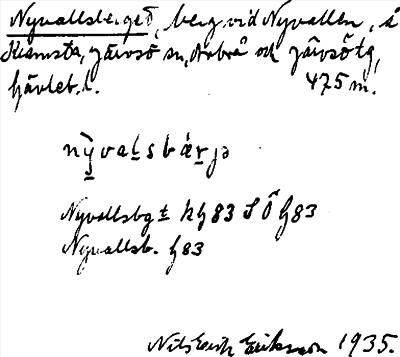 Nyvallsberget, berg vid Nyvallen, å
Kramsta, Järvsö sn, Arbrå och Järvsö tg,
Gävleb. l. 475 m.
nỳvaḷsbárjə
Nyvallsbgt h G83 S Ö G83
Nyvallsb. G83
Nils Erik Eriksson 1935.